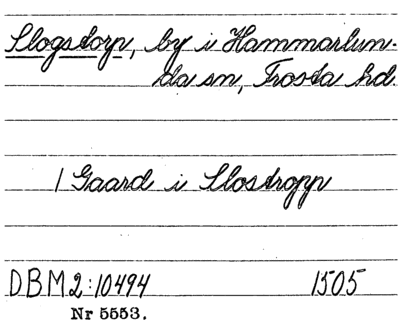 Slogstorp, by i Hammarlun-
da sn, Frosta hd.
1 Gaard i Slostropp
DBM 2:10494 1505
Nr 5553.